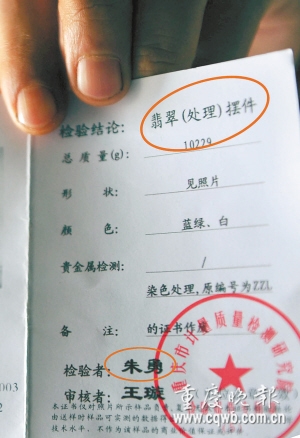 检验结论: 翡翠(处理)摆件
总质量(g): 10229
形状: 见照片
颜色: 蓝绿、白
贵金属检测: /
染色处理,原编号为ZZL
备注: 的证书作废
检验者: 朱勇
审核者: 王璇
本证书仅对照片所示样品负责
出具送样时样品可实测的数据
技术水平,不作为该样品的商业
003
2
重庆市计量质量检测研究院
重庆晚报
www.cqwb.com.cn